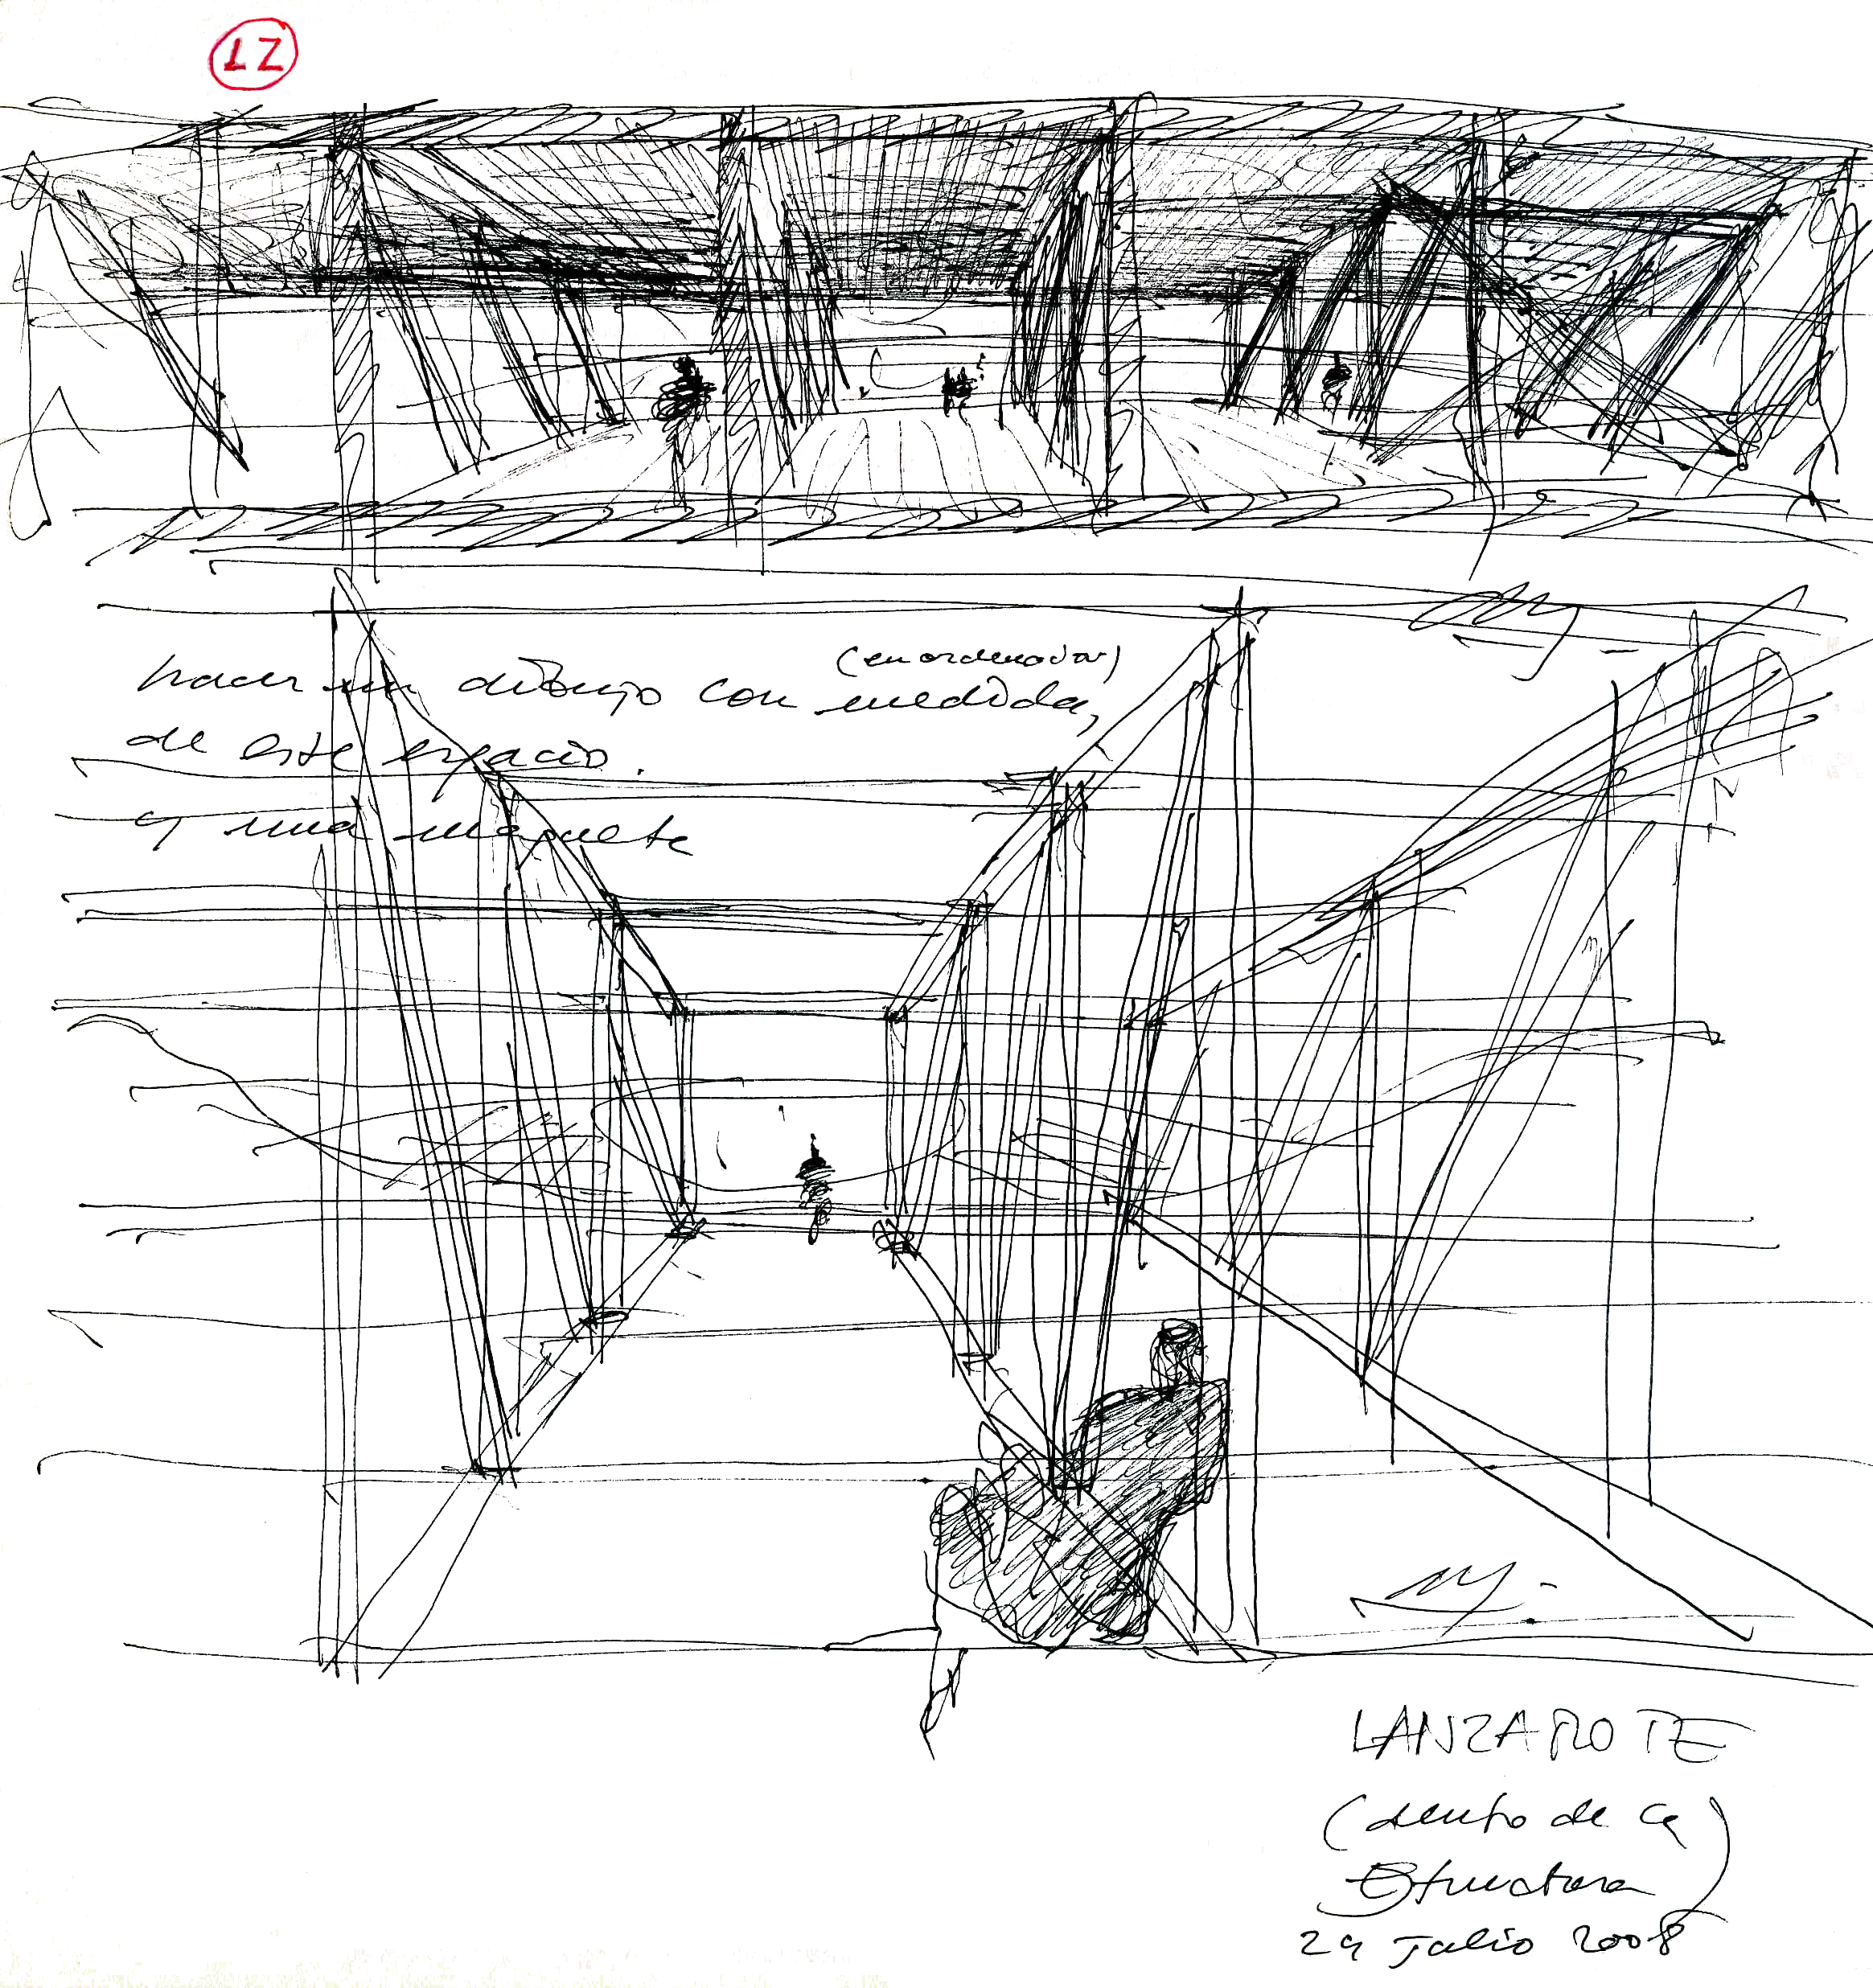 LZ
(en ordenador)
hacer un dibujo con medida,
de este espacio.
y una maqueta
LANZAROTE
(dentro de la
Estructura)
29 Julio 2008